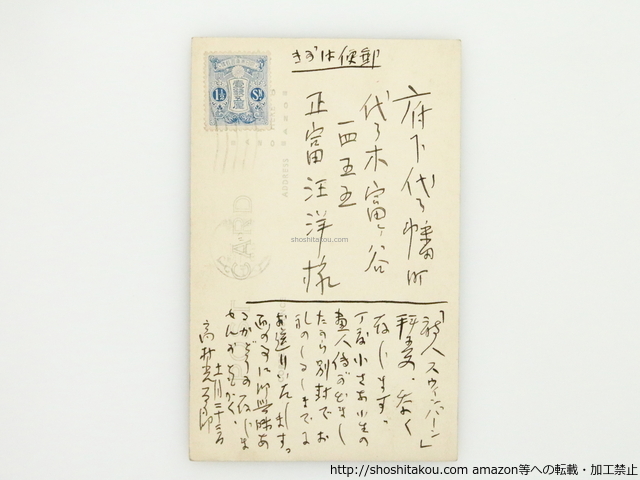 きがは便郵
府下代々幡町
代々木富ヶ谷
一四五五
正富汪洋様
「詩人スウィンバーン」
拝受、たく
存じます、
丁度小さな小生の
画人傳がでました
たから別封でお
礼のしるしまでに
お送りいたします。
画の方に御興味あ
るかどうか存じま
せんがともかく、
十一月二十三日
高村光太郎
1½ Sn
CARD
ADDRESS
shoshitakou.com
http://shoshitakou.com amazon等への転載・加工禁止